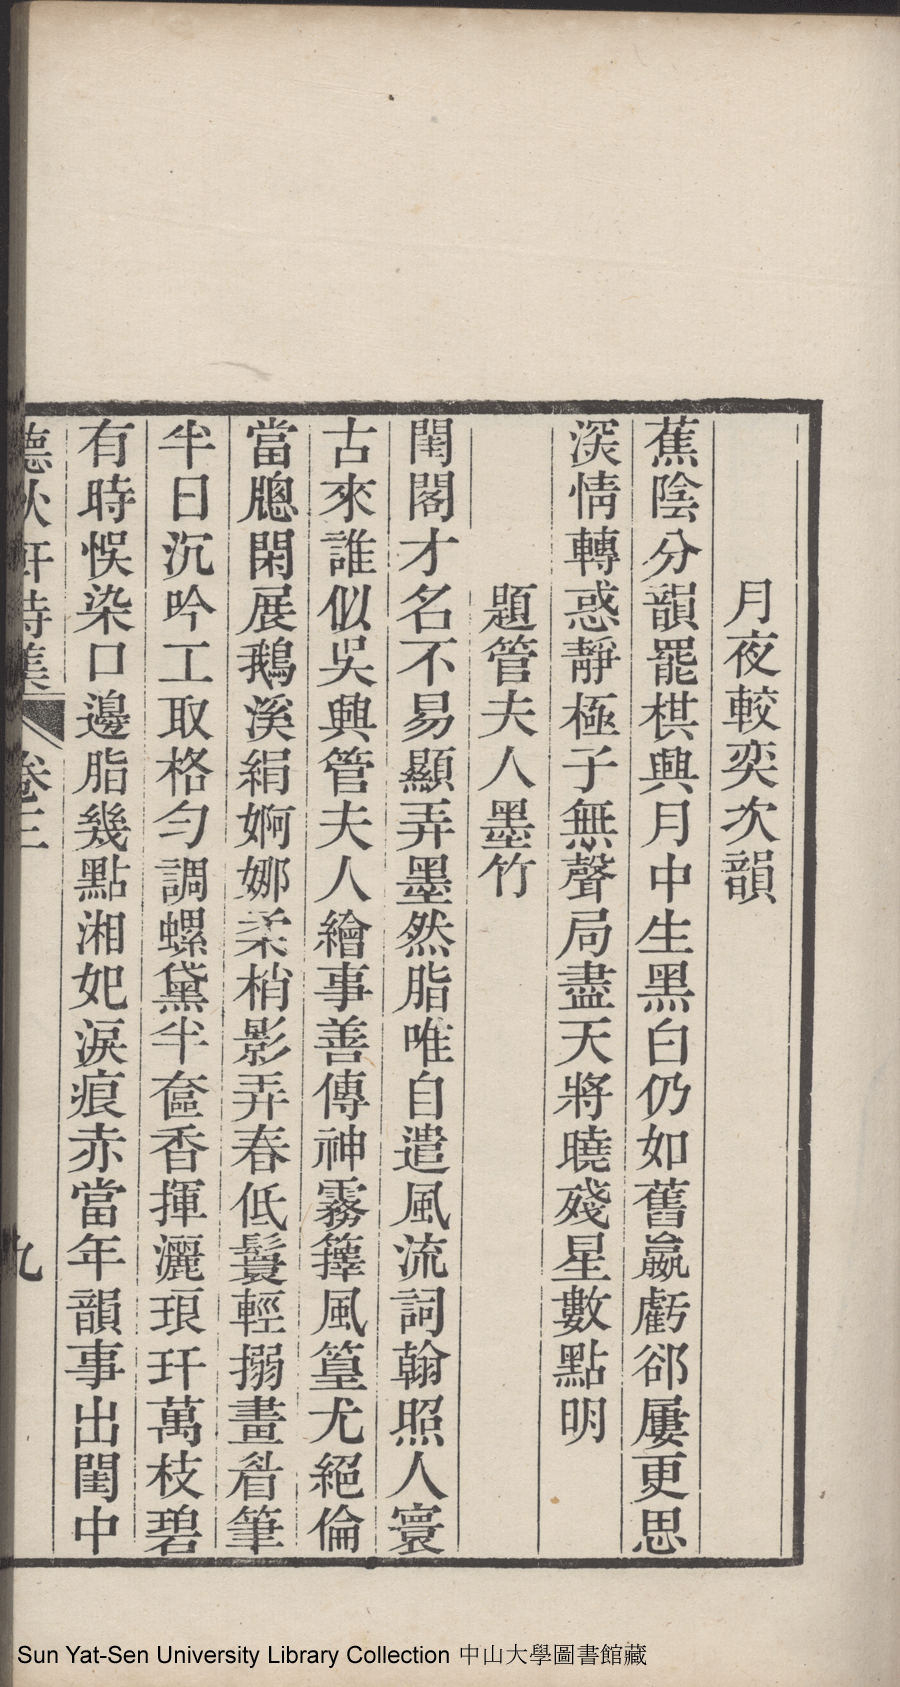 月夜較奕次韻
蕉陰分韻罷棋興月中生黑白仍如舊嬴虧郤屢更思
深情轉惑靜極子無聲局盡天將曉殘星數點明
題管夫人墨竹
閨閣才名不易顯弄墨然脂唯自遣風流詞翰照人寰
古來誰似吳興管夫人繪事善傳神霧籜風篁尤絕倫
當牕閑展鵝溪絹婀娜柔梢影弄春低鬟輕搦畫眉筆
半日沉吟工取格勻調螺黛半奩香揮灑琅玕萬枝碧
有時悞染口邊脂幾點湘妃淚痕赤當年韻事出閨中
德秋軒詩集 卷三 九
Sun Yat-Sen University Library Collection 中山大學圖書館藏